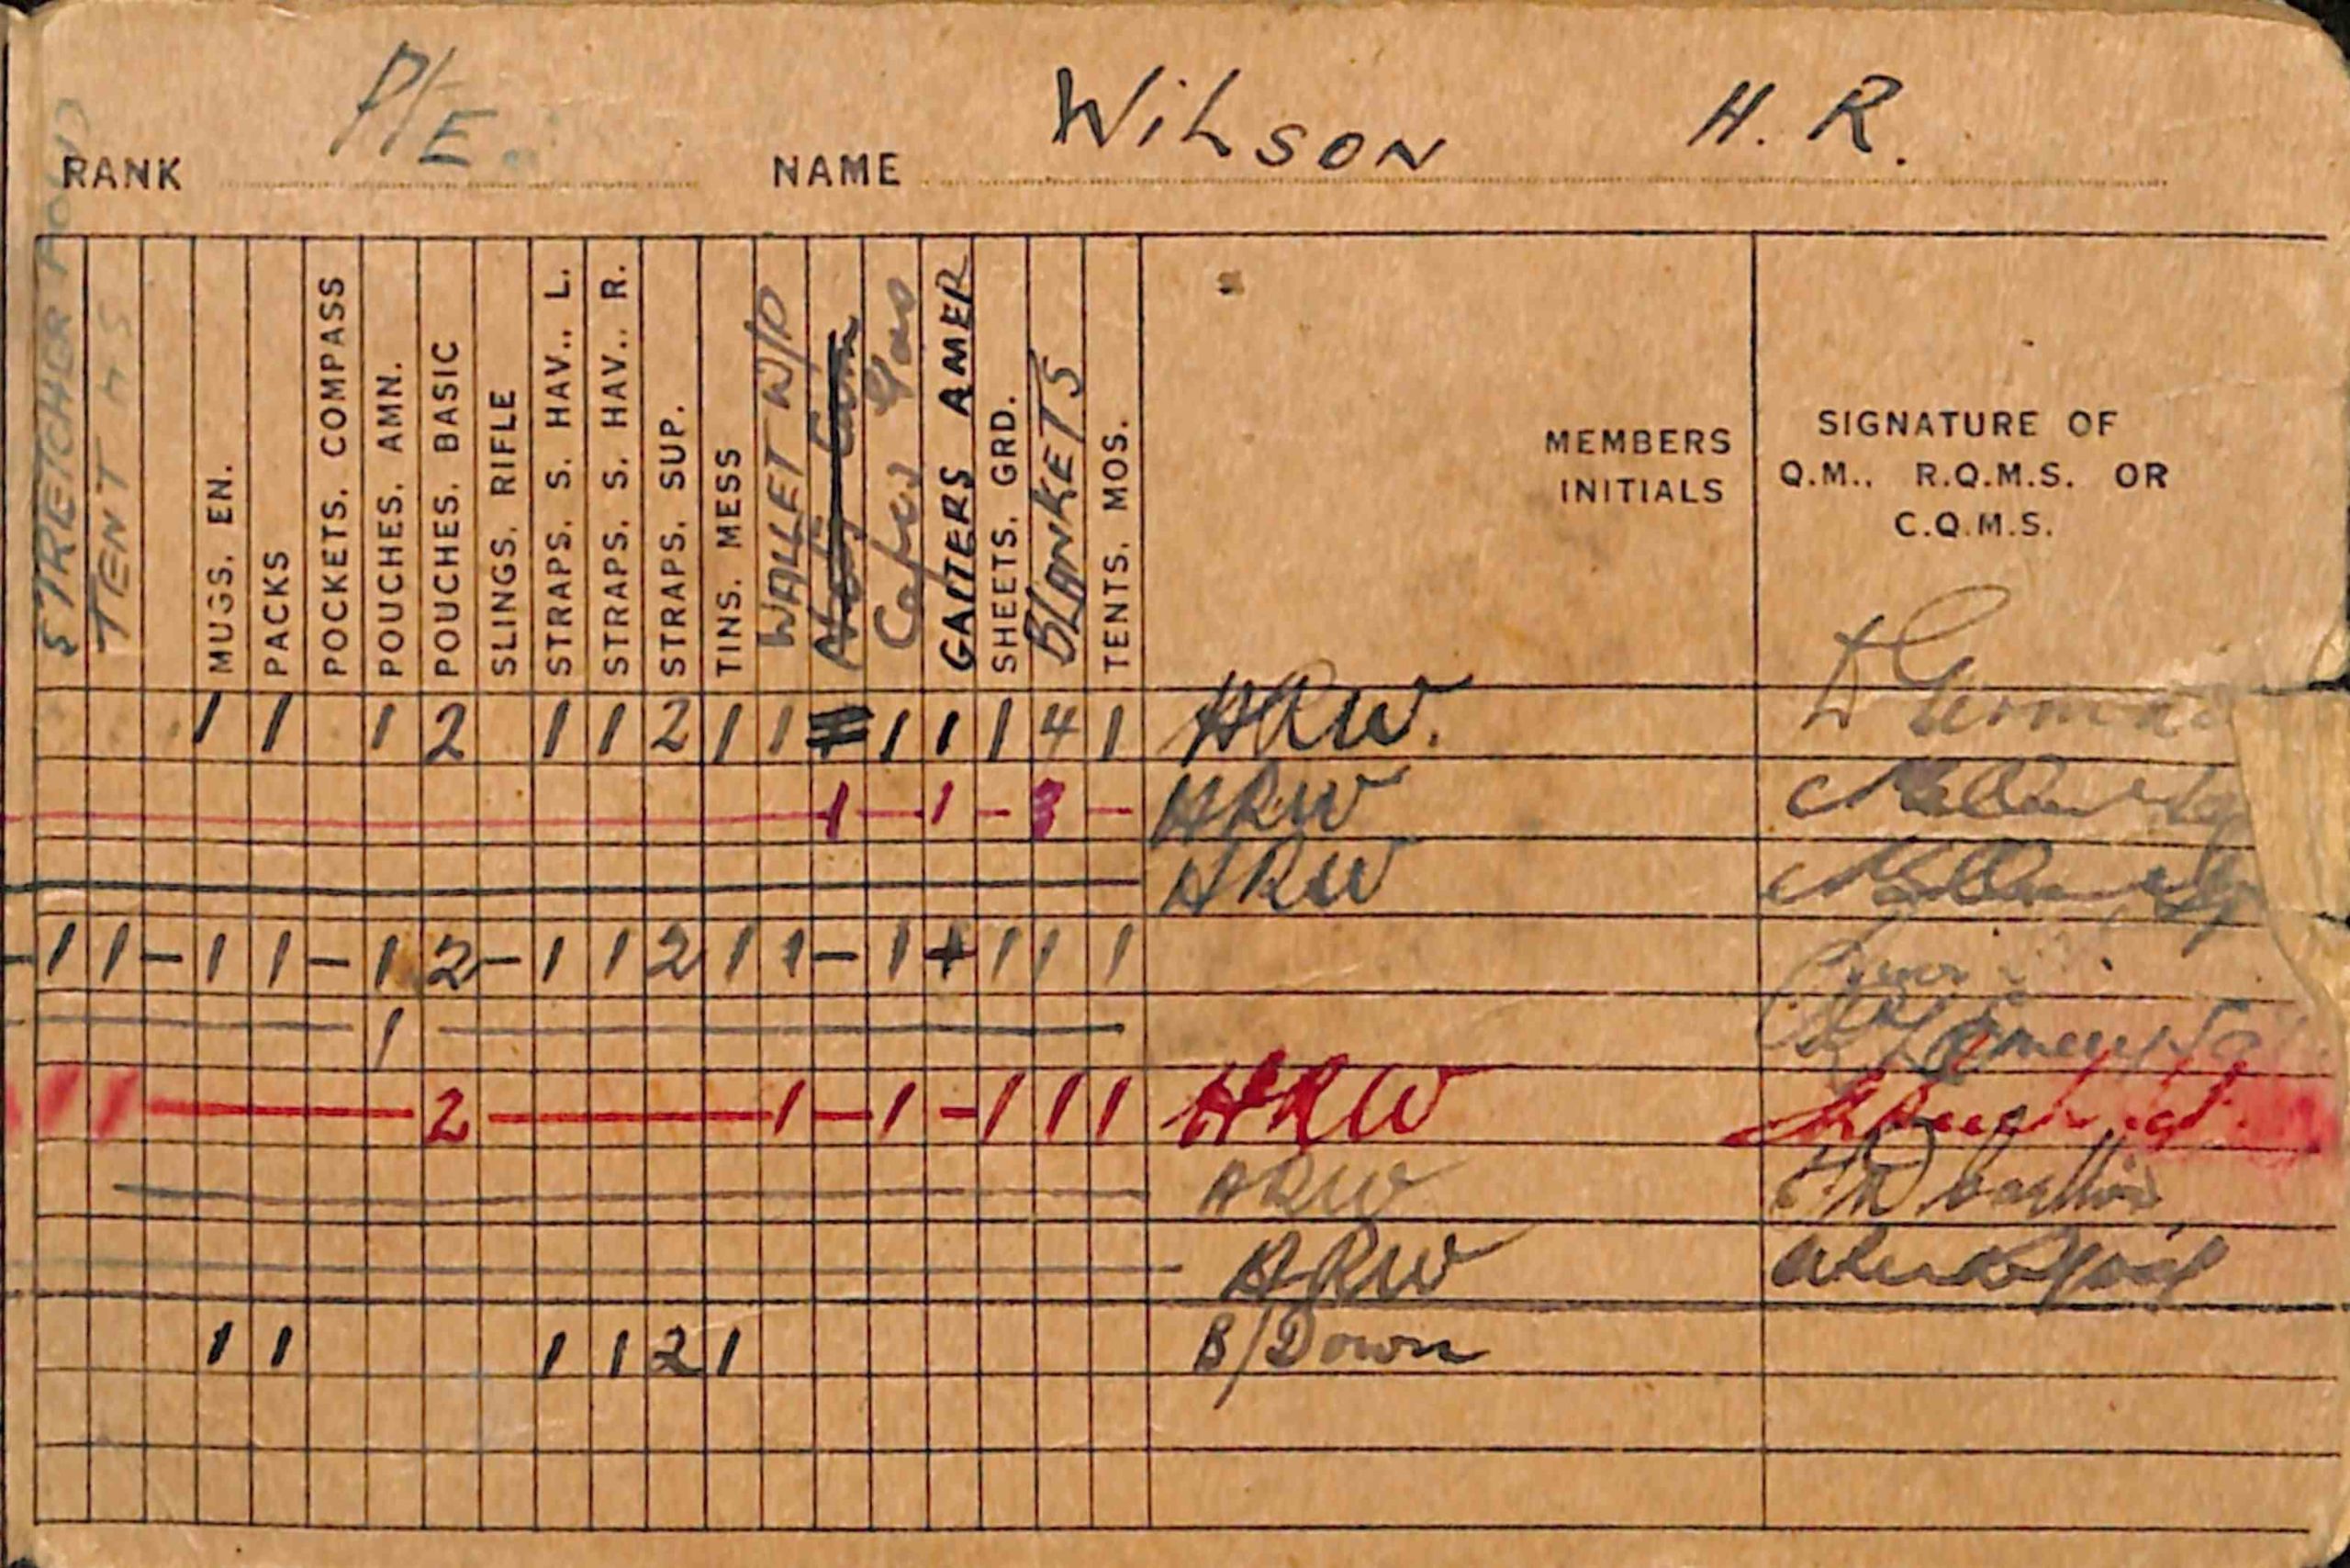 RANK P/E. NAME WiLSON H. R.
STRETCHER
TENT HS
MUGS. EN.
PACKS
POCKETS. COMPASS
POUCHES. AMN.
POUCHES. BASIC
SLINGS. RIFLE
STRAPS. S. HAV.. L.
STRAPS. S. HAV.. R.
STRAPS. SUP.
TINS. MESS
WALLET W/P
Capes Gas
GAITERS AMER
SHEETS. GRD.
BLANKETS
TENTS. MOS.
MEMBERS
INITIALS
SIGNATURE OF
Q.M.. R.Q.M.S. OR
C.Q.M.S.
1 1 1 2 1 1 2 1 1 1 1 1 4 1 HRW.
1 — 1 — 3 — HRW
HRW
— 1 1 — 1 1 — 1 2 — 1 1 2 1 1 — 1 + 1 1 1
1
1 1 — 2 — 1 — 1 — 1 1 1 HRW
HRW
HRW
1 1 1 1 2 1 B/Down